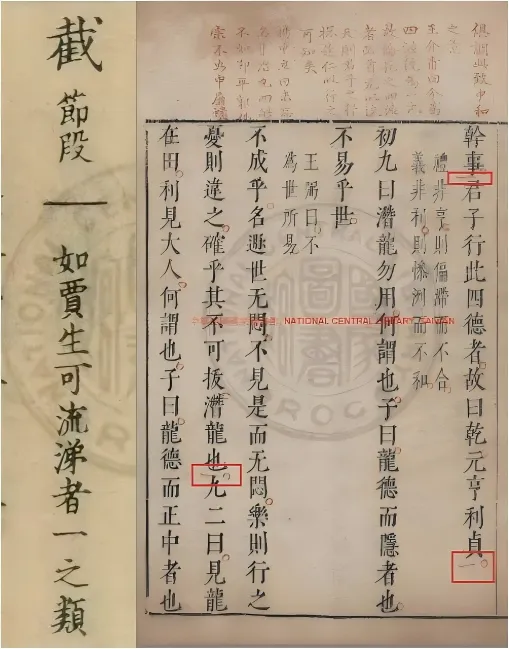 截
節段
如賈生可流涕者一之類
之意
可知矣
幹事君子行此四德者故曰乾元亨利貞
禮非亨則偏滯而不合
義非利則慘洌而不和
初九曰潛龍勿用何謂也子曰龍德而隱者也
不易乎世
王弼曰不
為世所易
不成乎名遯世无悶不見是而无悶樂則行之
憂則違之確乎其不可拔潛龍也九二曰見龍
在田利見大人何謂也子曰龍德而正中者也
NATIONAL CENTRAL LIBRARY, TAIWAN